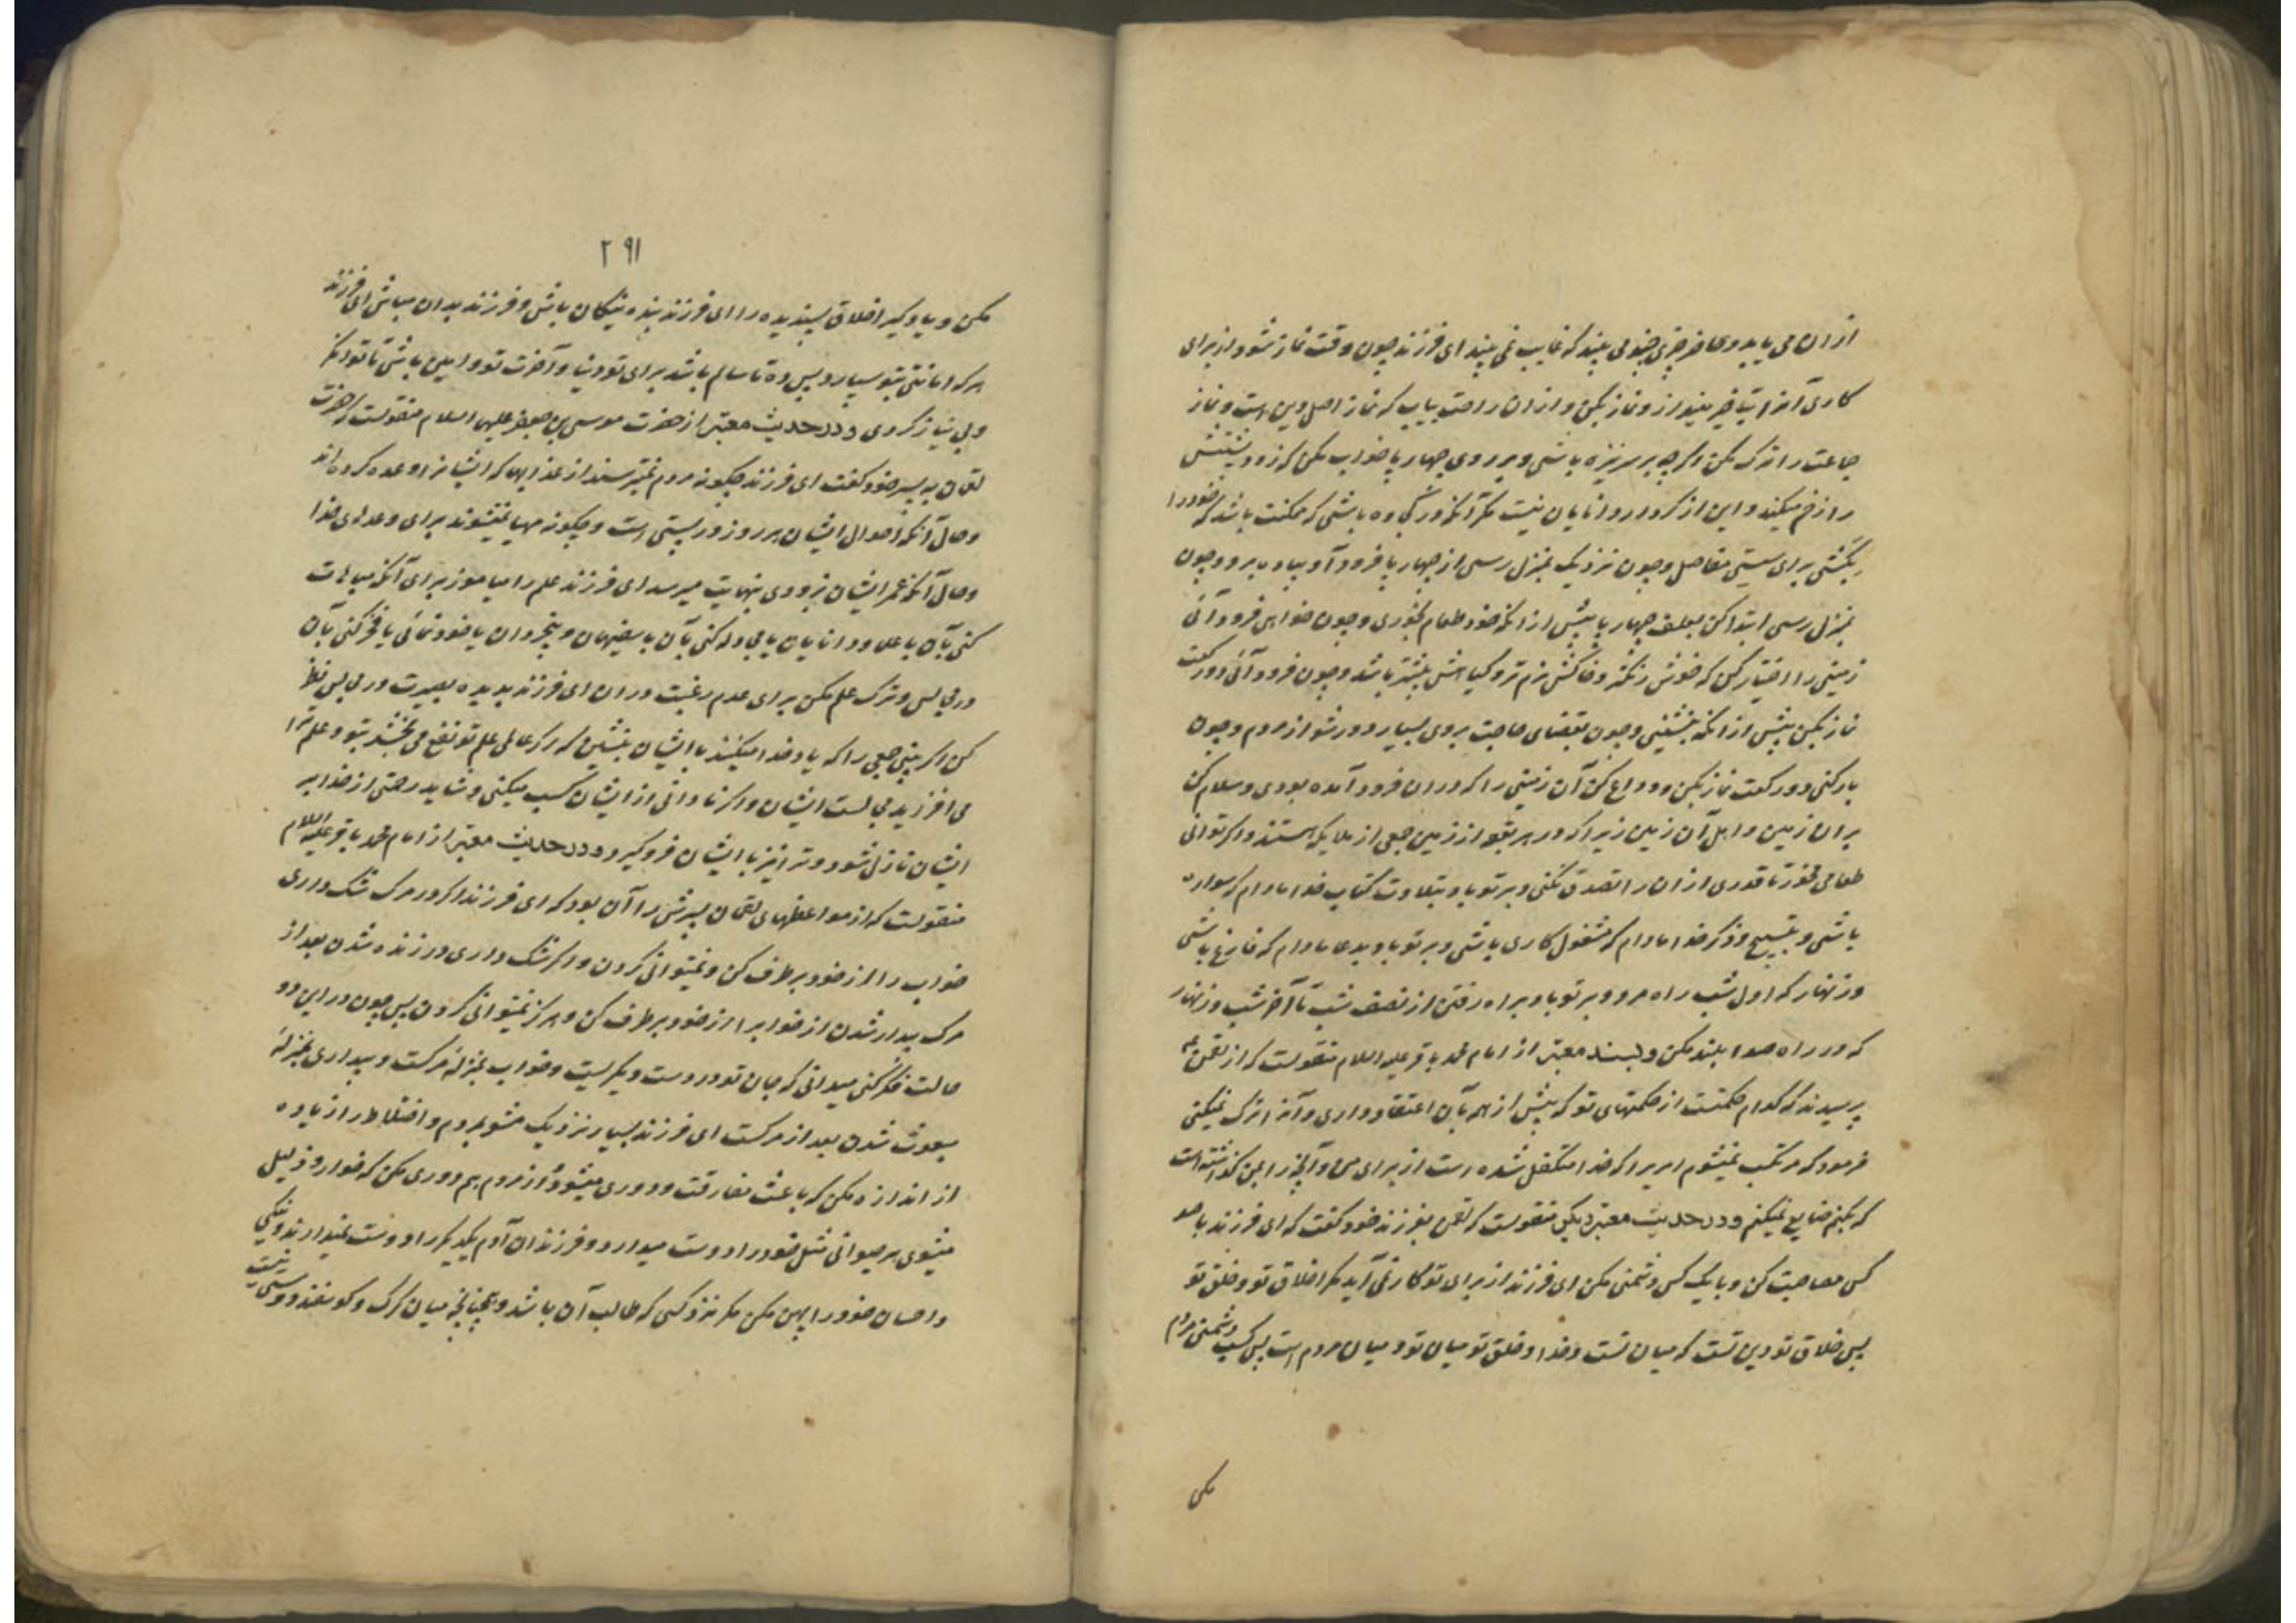 ازان می یابد و حاضر چیزی چند می بیند که غایب نمی بیند ای فرزند چون وقت نماز شود از برای
کاری آنرا بتاخیر مینداز و نماز بکن و ازان راحت بیاب که نماز اصل دین است و نماز
جماعت را ترک مکن اگرچه بر سر نیزه باشی و بر روی چهارپا خواب مکن که زود پشتش
را زخم میکند و این از کردار دانایان نیست مگر آنکه در کجاوه باشی که ممکنت باشد که خود را
بکشی برای سستی مفاصل و چون نزدیک بمنزل رسی از چهارپا فرود آ و پیاده برو و چون
بمنزل رسی ابتدا کن بعلف چهارپا پیش ازانکه خود طعام بخوری و چون خواهی فرود آئی
زمینی را اختیار کن که خوش رنگتر و خاکش نرم تر و گیاهش بیشتر باشد و چون فرود آئی دو رکعت
نماز بکن پیش ازانکه بنشینی و چون بقضای حاجت بروی بسیار دور شو از مردم و چون
بار کنی دو رکعت نماز بکن و وداع کن آن زمینی را که دران فرود آمده بودی و سلام کن
بران زمین و اهل آن زمین زیرا که در هر بقعه از زمین جمعی از ملایکه هستند و اگر توانی
طعامی مخور تا قدری ازان را تصدق نکنی و بر تو باد بتلاوت کتاب خدا مادام که سواره
باشی و بتسبیح و ذکر خدا مادام که مشغول کاری باشی و بر تو باد بدعا مادام که فارغ باشی
و زنهار که اول شب راه مرو و بر تو باد براه رفتن از نصف شب تا آخر شب و زنهار
که در راه صدا بلند مکن و بسند معتبر از امام محمد باقر علیه السلام منقولست که از لقمن
پرسیدند که کدام حکمتست از حکمتهای تو که بیش از همه بآن اعتقاد داری و آنرا ترک نمیکنی
فرمود که مرتکب نمیشوم امریرا که خدا متکفل شده است از برای من و آنچه را بمن گذاشته است
که بکنم ضایع نمیکنم و در حدیث معتبر دیگر منقولست که لقمن بفرزند خود گفت که ای فرزند با صد
کس مصاحبت کن و با یک کس دشمنی مکن ای فرزند از برای تو بکار نمی آید مگر اخلاق تو و خلق تو
پس خلاق تو دین تست که میان تست و خدا و خلق تو میان تو و میان مردم است پس کسب دشمنی مردم
مکن
۲۹۱
مکن و یاد گیر اخلاق پسندیده را ای فرزند بنده نیکان باش و فرزند بدان مباش ای فرزند
هر که امانتی بتو سپارد پس ده تا سالم باشد برای تو دنیا و آخرت تو و امین باش تا توانگر
و بی نیاز گردی و در حدیث معتبر از حضرت موسی بن جعفر علیهما السلام منقولست که حضرت
لقمان به پسر خود گفت ای فرزند چگونه مردم نمیترسند از عذابهای که ایشانرا وعده کرده اند
و حال آنکه احوال ایشان هر روز در پستی است و چگونه مهیا نمیشوند برای وعدهای خدا
و حال آنکه عمر ایشان بزودی بنهایت میرسد ای فرزند علم را میاموز برای آنکه مباهات
کنی بآن با علما و دانایان یا مجادله کنی بآن با سفیهان و بیخردان یا خودنمائی یا فخر کنی بآن
در مجالس و ترک علم مکن برای عدم رغبت دران ای فرزند بدیده بصیرت در مجالس نظر
کن اگر بینی جمعی را که یاد خدا میکنند با ایشان بنشین که اگر عالمی علم تو نفع می بخشد بتو و علم ترا
می افزاید مجالست ایشان و اگر نادانی از ایشان کسب میکنی و شاید رحمتی از خدا بر
ایشان نازل شود و ترا نیز با ایشان فرو گیرد و در حدیث معتبر از امام محمد باقر علیه السلام
منقولست که از موعظهای لقمان پسرش را آن بود که ای فرزند اگر در مرگ شک داری
خواب را از خود برطرف کن و نمیتوانی کردن و اگر شک داری در زنده شدن بعد از
مرگ بیدار شدن از خوابرا از خود برطرف کن و هرگز نمیتوانی کردن پس چون در این دو
حالت فکر کنی میدانی که جان تو در دست دیگریست و خواب بمنزلهٔ مرگست و بیداری بمنزلهٔ
مبعوث شدن بعد از مرگست ای فرزند بسیار نزدیک مشو بمردم و اختلاط را زیاده
از اندازه مکن که باعث مفارقت و دوری میشود و از مردم هم دوری مکن که خوار و ذلیل
میشوی هر حیوانی مثل خود را دوست میدارد و فرزندان آدم یکدیگر را دوست نمیدارند و نیکی
و احسان خود را پهن مکن مگر نزد کسی که طالب آن باشد و همچنانچه میان گرگ و گوسفند دوستی نیست